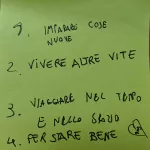 1. IMPARARE COSE
NUOVE
2. VIVERE ALTRE VITE
3. VIAGGIARE NEL TEMPO
E NELLO SPAZIO
4. PER STARE BENE